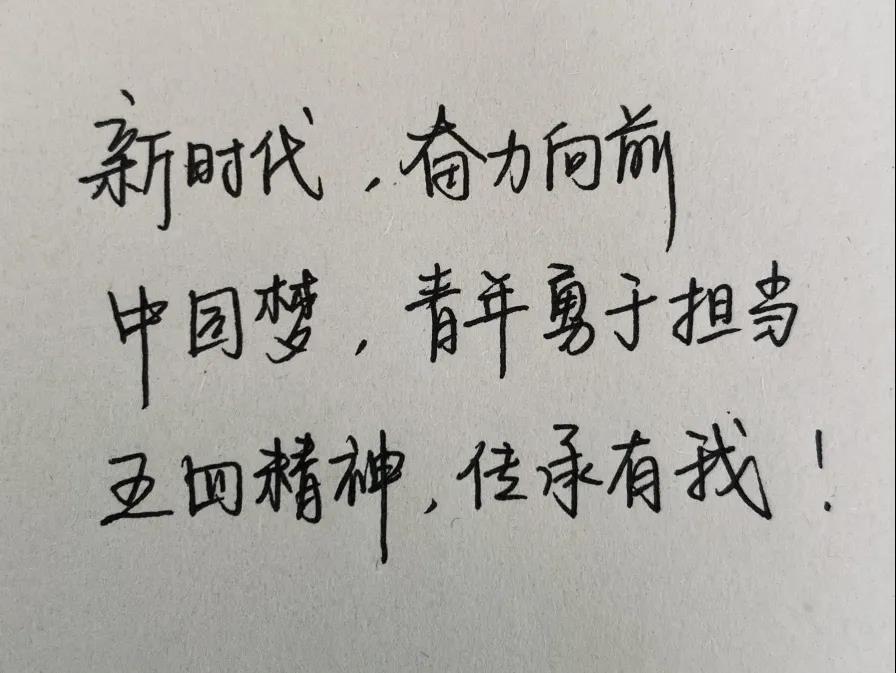 新时代，奋力向前
中国梦，青年勇于担当
五四精神，传承有我！